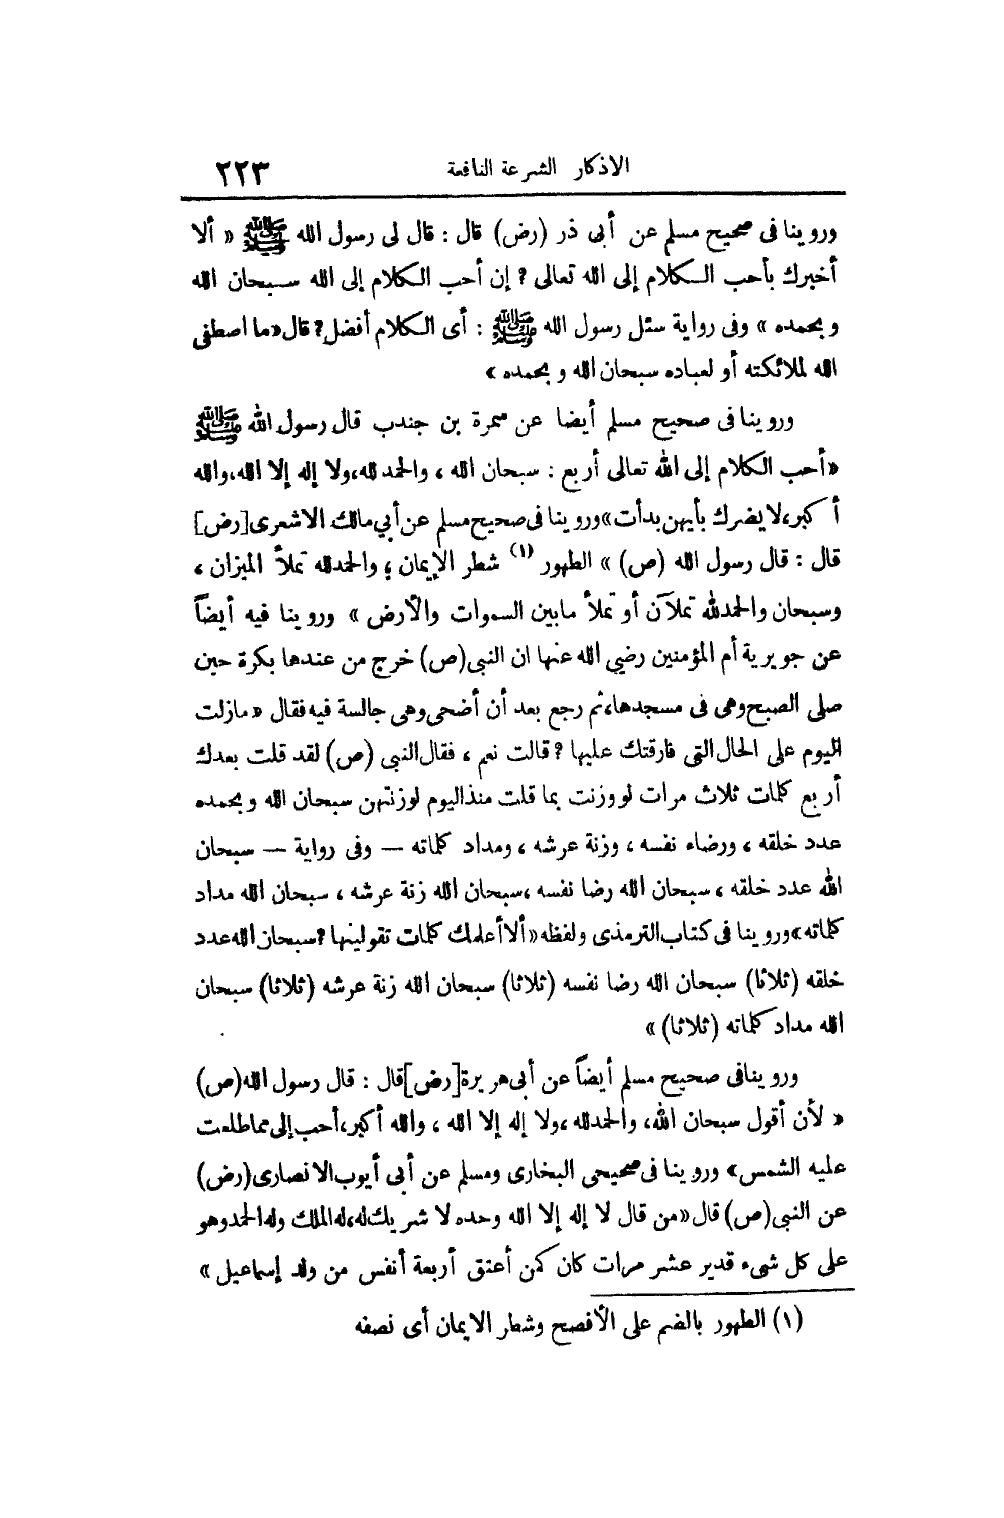 الاذكار الشرعة النافعة ٢٢٣
وروينا فى صحيح مسلم عن أبى ذر (رض) قال : قال لى رسول الله ﷺ « ألا
أخبرك بأحب الكلام إلى الله تعالى ؟ إن أحب الكلام إلى الله سبحان الله
وبحمده » وفى رواية سئل رسول الله ﷺ : أى الكلام أفضل؟ قال «ما اصطفى
الله لملائكته أو لعباده سبحان الله وبحمده »
وروينا فى صحيح مسلم أيضا عن سمرة بن جندب قال رسول الله ﷺ
«أحب الكلام إلى الله تعالى أربع : سبحان الله ، والحمد لله،ولا إله إلا الله،والله
أكبر،لا يضرك بأيهن بدأت»وروينا فى صحيح مسلم عن أبي مالك الاشعرى[رض]
قال : قال رسول الله (ص) » الطهور (١) شطر الإيمان ؛ والحمدلله تملأ الميزان ،
وسبحان والحمدلله تملآن أو تملأ مابين السموات والأرض » وروينا فيه أيضاً
عن جويرية أم المؤمنين رضي الله عنها ان النبى(ص) خرج من عندها بكرة حين
صلى الصبح وهى فى مسجدها،ثم رجع بعد أن أضحى وهى جالسة فيه فقال « مازلت
اليوم على الحال التى فارقتك عليها ؟ قالت نعم ، فقال النبى (ص) لقد قلت بعدك
أربع كلمات ثلاث مرات لو وزنت بما قلت منذ اليوم لوزنتهن سبحان الله وبحمده
عدد خلقه ، ورضاء نفسه ، وزنة عرشه ، ومداد كلماته — وفى رواية — سبحان
الله عدد خلقه ، سبحان الله رضا نفسه ،سبحان الله زنة عرشه ، سبحان الله مداد
كلماته»وروينا فى كتاب الترمذى ولفظه«ألا أعلمك كلمات تقولينها ؟سبحان الله عدد
خلقه (ثلاثا) سبحان الله رضا نفسه (ثلاثا) سبحان الله زنة عرشه (ثلاثا) سبحان
الله مداد كلماته (ثلاثا) »
وروينافى صحيح مسلم أيضاً عن أبى هريرة[رض]قال : قال رسول الله(ص)
« لأن أقول سبحان الله، والحمدلله ،ولا إله إلا الله ، والله أكبر،أحب إلى مما طلعت
عليه الشمس» وروينا فى صحيحى البخارى ومسلم عن أبى أيوب الانصارى(رض)
عن النبى(ص) قال«من قال لا إله إلا الله وحده لا شريك له،له الملك وله الحمد وهو
على كل شىء قدير عشر مرات كان كمن أعتق أربعة أنفس من ولد إسماعيل »
(١) الطهور بالضم على الأفصح وشطر الايمان أى نصفه